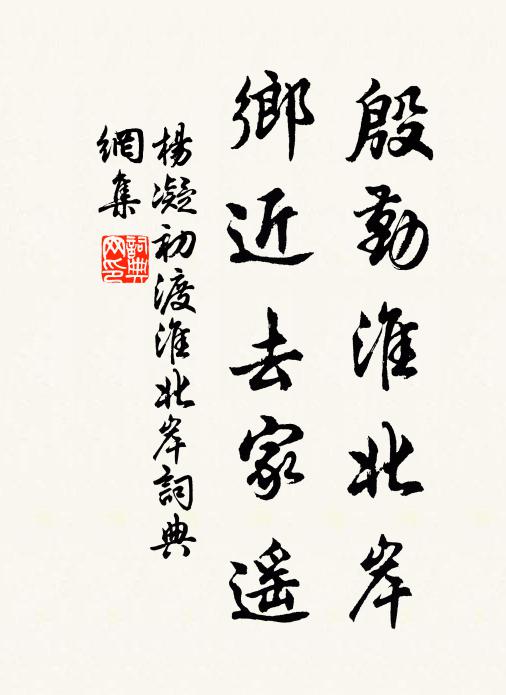 殷勤淮北岸
鄉近去家遥
楊凝初渡淮北岸詞典
網集
詞典
网印